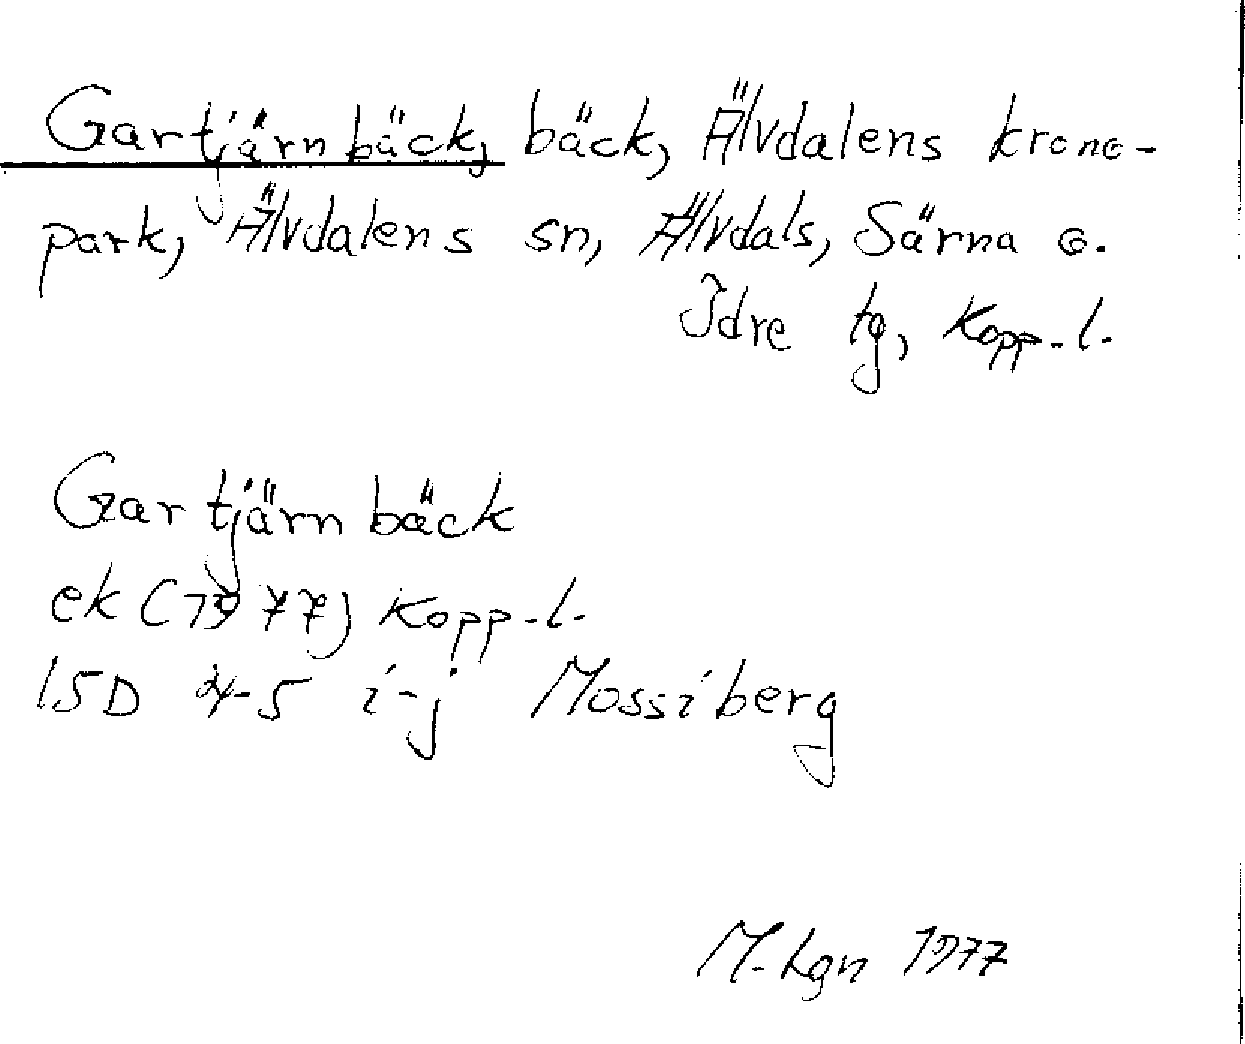 Gartjärnbäck, bäck, Älvdalens krono-
park, Älvdalens sn, Älvdals, Särna o.
Idre tg, Kopp-l.
Gartjärnbäck
ek (1977) Kopp-l.
15D 4-5 i-j Mossiberg
M-Lgn 1977